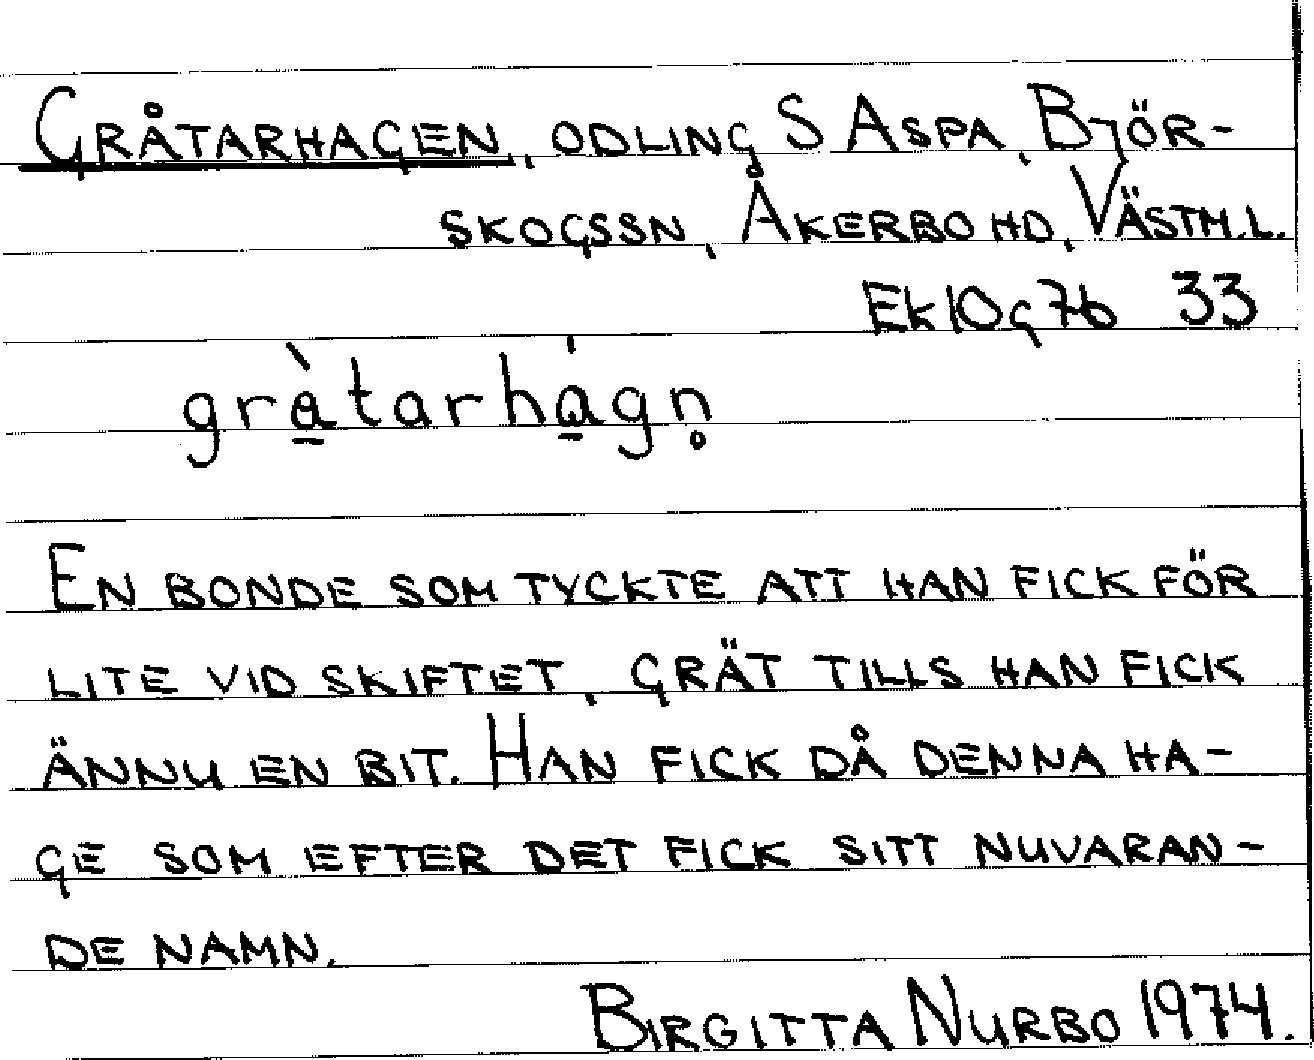 GRÅTARHAGEN, ODLING S ASPA, BJÖR-
SKOGSSN, ÅKERBO HD, VÄSTM.L.
Ek 10g7b 33
grå̀tarhágn̥
EN BONDE SOM TYCKTE ATT HAN FICK FÖR
LITE VID SKIFTET, GRÄT TILLS HAN FICK
ÄNNU EN BIT. HAN FICK DÅ DENNA HA-
GE SOM EFTER DET FICK SITT NUVARAN-
DE NAMN.
BIRGITTA NURBO 1974.